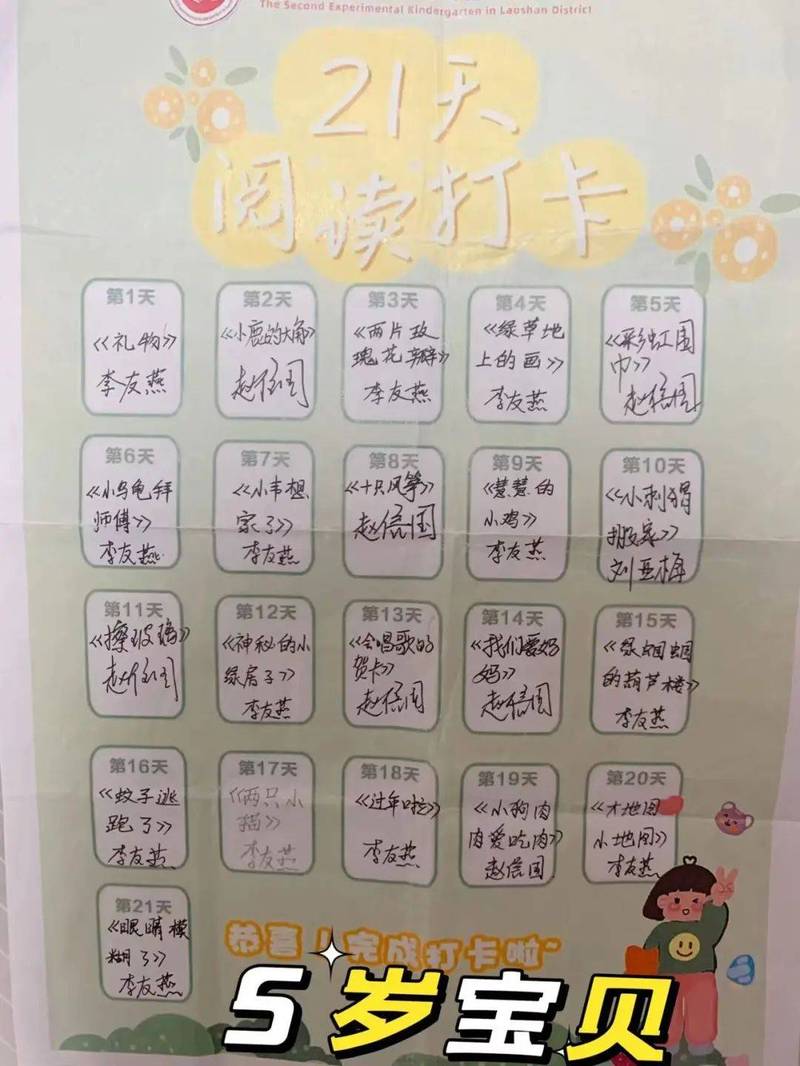 The Second Experimental Kindergarten in Laoshan District
21天
阅读打卡
第1天
《礼物》
李友燕
第2天
《小鹿的大角》
赵信国
第3天
《两片玫
瑰花瓣》
李友燕
第4天
《绿草地
上的画》
李友燕
第5天
《彩虹围
巾》
赵信国
第6天
《小乌龟拜
师傅》
李友燕
第7天
《小韦想
家了》
李友燕
第8天
《十只风筝》
赵信国
第9天
《慧慧的
小鸡》
李友燕
第10天
《小刺猬
搬家》
刘亚梅
第11天
《擦玻璃》
赵信国
第12天
《神秘的小
绿房子》
李友燕
第13天
《会唱歌的
贺卡》
赵信国
第14天
《我们爱妈
妈》
赵信国
第15天
《绿蝈蝈
的葫芦楼》
李友燕
第16天
《蚊子逃
跑了》
李友燕
第17天
《两只小
猫》
李友燕
第18天
《过年啦》
李友燕
第19天
《小狗肉
肉爱吃肉》
赵信国
第20天
《大地图
小地图》
李友燕
第21天
《眼睛模
糊了》
李友燕
恭喜!完成打卡啦~
5岁宝贝